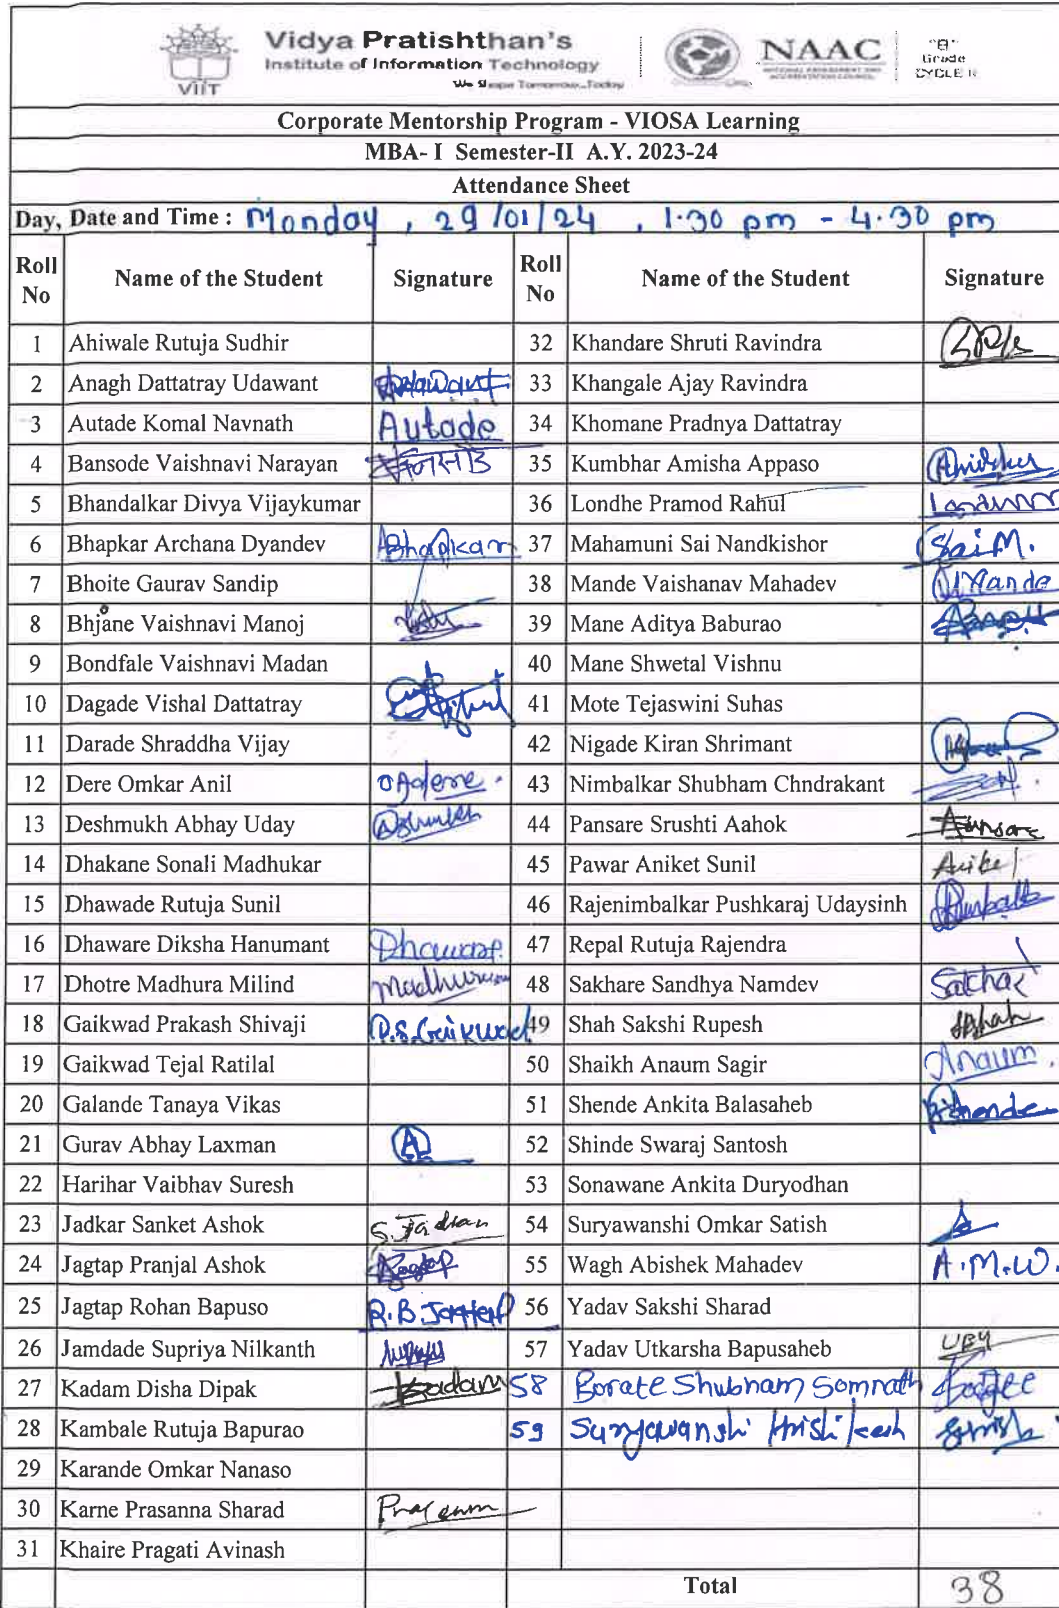 VIIT
Vidya Pratishthan's
Institute of Information Technology
We Shape Tomorrow...Today
NAAC
NATIONAL ASSESSMENT AND
ACCREDITATION COUNCIL
"B"
Grade
CYCLE II
Corporate Mentorship Program - VIOSA Learning
MBA- I Semester-II A.Y. 2023-24
Attendance Sheet
Day, Date and Time : Monday , 29/01/24 , 1.30 pm - 4.30 pm
Roll No Name of the Student Signature Roll No Name of the Student Signature
1 Ahiwale Rutuja Sudhir 32 Khandare Shruti Ravindra
2 Anagh Dattatray Udawant Udawant 33 Khangale Ajay Ravindra
3 Autade Komal Navnath Autade 34 Khomane Pradnya Dattatray
4 Bansode Vaishnavi Narayan 35 Kumbhar Amisha Appaso
5 Bhandalkar Divya Vijaykumar 36 Londhe Pramod Rahul
6 Bhapkar Archana Dyandev ABhapkar 37 Mahamuni Sai Nandkishor Sai M.
7 Bhoite Gaurav Sandip 38 Mande Vaishanav Mahadev VMande
8 Bhjane Vaishnavi Manoj 39 Mane Aditya Baburao
9 Bondfale Vaishnavi Madan 40 Mane Shwetal Vishnu
10 Dagade Vishal Dattatray 41 Mote Tejaswini Suhas
11 Darade Shraddha Vijay 42 Nigade Kiran Shrimant
12 Dere Omkar Anil OAdere. 43 Nimbalkar Shubham Chndrakant
13 Deshmukh Abhay Uday 44 Pansare Srushti Aahok Pansare
14 Dhakane Sonali Madhukar 45 Pawar Aniket Sunil Aniket
15 Dhawade Rutuja Sunil 46 Rajenimbalkar Pushkaraj Udaysinh
16 Dhaware Diksha Hanumant Dhaware. 47 Repal Rutuja Rajendra
17 Dhotre Madhura Milind Madhura 48 Sakhare Sandhya Namdev
18 Gaikwad Prakash Shivaji P.S.Gaikwad 49 Shah Sakshi Rupesh SShah
19 Gaikwad Tejal Ratilal 50 Shaikh Anaum Sagir Anaum.
20 Galande Tanaya Vikas 51 Shende Ankita Balasaheb AShende
21 Gurav Abhay Laxman A 52 Shinde Swaraj Santosh
22 Harihar Vaibhav Suresh 53 Sonawane Ankita Duryodhan
23 Jadkar Sanket Ashok 54 Suryawanshi Omkar Satish
24 Jagtap Pranjal Ashok 55 Wagh Abishek Mahadev A.M.W.
25 Jagtap Rohan Bapuso R.B.Jagtap 56 Yadav Sakshi Sharad
26 Jamdade Supriya Nilkanth 57 Yadav Utkarsha Bapusaheb UBY
27 Kadam Disha Dipak Kadam 58 Borate Shubham Somnath
28 Kambale Rutuja Bapurao 59 Suryawanshi Hrishikesh
29 Karande Omkar Nanaso
30 Karne Prasanna Sharad
31 Khaire Pragati Avinash
Total 38